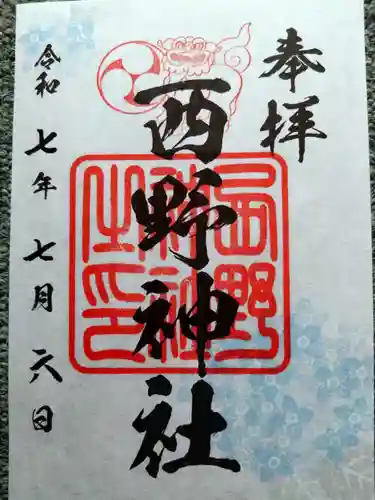 奉拝
西野神社
西野神社之印
令和七年七月六日